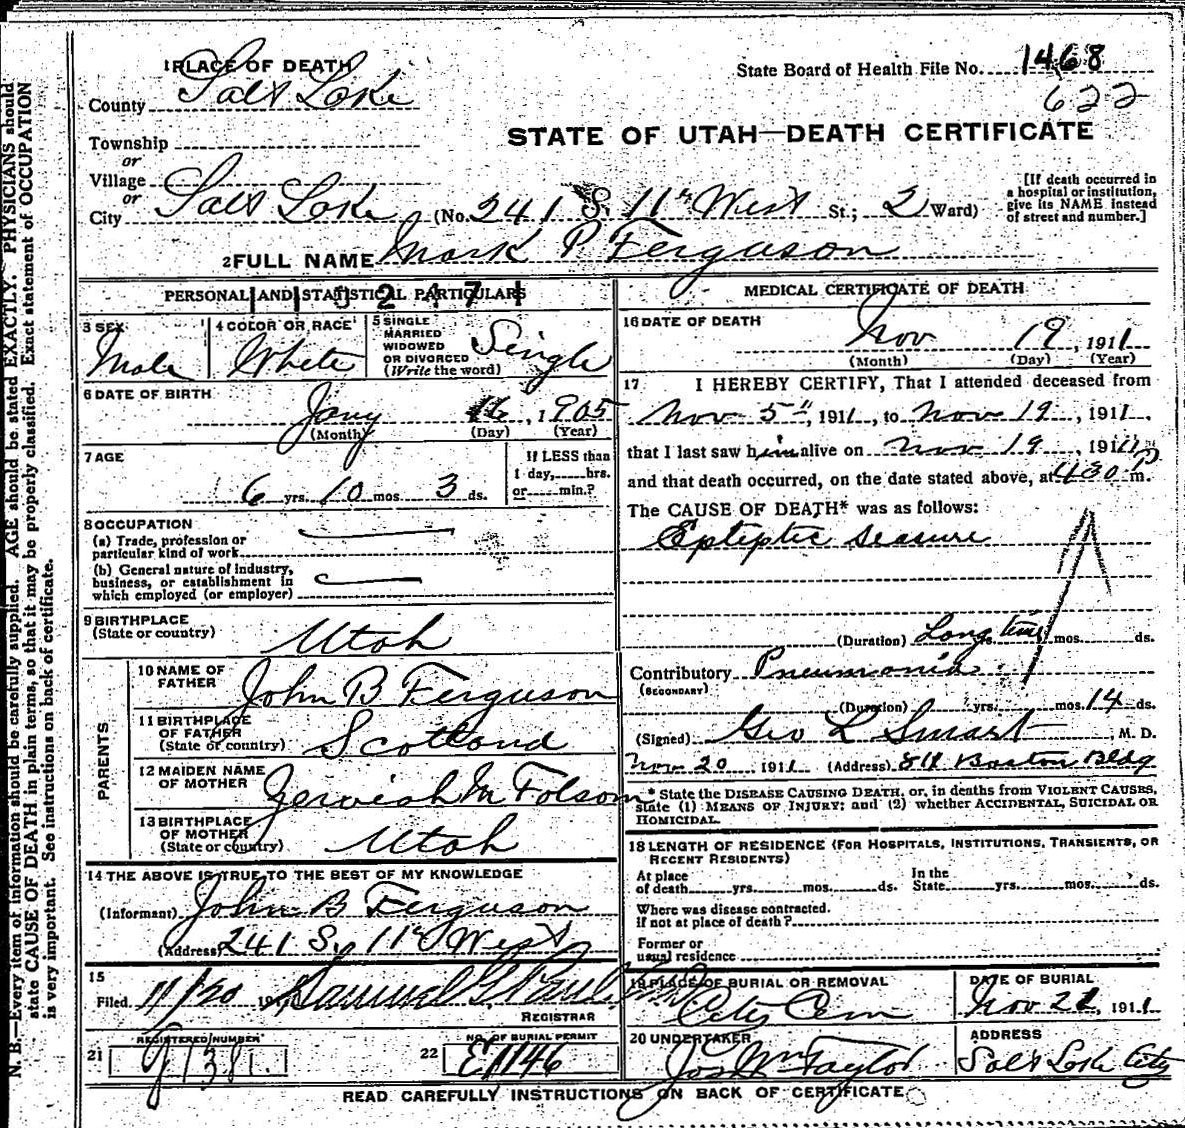 1 PLACE OF DEATH
State Board of Health File No. 1468
County Salt Lake
622
STATE OF UTAH—DEATH CERTIFICATE
Township
or
Village
or
City Salt Lake (No. 241 S. 11th West St.; 2 Ward)
[If death occurred in
a hospital or institution,
give its NAME instead
of street and number.]
2 FULL NAME Mark P Ferguson
PERSONAL AND STATISTICAL PARTICULARS
3 SEX
Male
4 COLOR OR RACE
White
5 SINGLE
MARRIED
WIDOWED
OR DIVORCED
(Write the word)
Single
6 DATE OF BIRTH
Jany 16, 1905
(Month) (Day) (Year)
7 AGE
6 yrs. 10 mos. 3 ds.
If LESS than
1 day, hrs.
or min.?
8 OCCUPATION
(a) Trade, profession or
particular kind of work
(b) General nature of industry,
business, or establishment in
which employed (or employer)
9 BIRTHPLACE
(State or country)
Utah
PARENTS
10 NAME OF
FATHER
John B Ferguson
11 BIRTHPLACE
OF FATHER
(State or country)
Scotland
12 MAIDEN NAME
OF MOTHER
M Folsom
13 BIRTHPLACE
OF MOTHER
(State or country)
Utah
14 THE ABOVE IS TRUE TO THE BEST OF MY KNOWLEDGE
(Informant) John B Ferguson
(Address) 241 S. 11th West
15
Filed 11/20 191 Samuel G. Paul
REGISTRAR
REGISTERED NUMBER
21
NO. OF BURIAL PERMIT
22 E1146
MEDICAL CERTIFICATE OF DEATH
16 DATE OF DEATH
Nov 19, 1911
(Month) (Day) (Year)
17 I HEREBY CERTIFY, That I attended deceased from
Nov 5", 1911, to Nov 19, 1911,
that I last saw him alive on Nov 19, 1911,
and that death occurred, on the date stated above, at 430 P m.
The CAUSE OF DEATH* was as follows:
Epteptic seasure
(Duration) Long time mos. ds.
Contributory Pneumonia
(SECONDARY)
(Duration) yrs. mos. 14 ds.
(Signed) Geo L Smart, M. D.
Nov 20 1911 (Address) Boston Bldg
* State the DISEASE CAUSING DEATH, or, in deaths from VIOLENT CAUSES,
state (1) MEANS OF INJURY; and (2) whether ACCIDENTAL, SUICIDAL OR
HOMICIDAL.
18 LENGTH OF RESIDENCE (FOR HOSPITALS, INSTITUTIONS, TRANSIENTS, OR
RECENT RESIDENTS)
At place
of death yrs. mos. ds.
In the
State yrs. mos. ds.
Where was disease contracted.
if not at place of death?
Former or
usual residence
19 PLACE OF BURIAL OR REMOVAL
City Cem
DATE OF BURIAL
Nov 22, 1911
20 UNDERTAKER
Jos Wm Taylor
ADDRESS
Salt Lake City
READ CAREFULLY INSTRUCTIONS ON BACK OF CERTIFICATE
N. B.—Every item of information should be carefully supplied. AGE should be stated EXACTLY. PHYSICIANS should
state CAUSE OF DEATH in plain terms, so that it may be properly classified. Exact statement of OCCUPATION
is very important. See instructions on back of certificate.